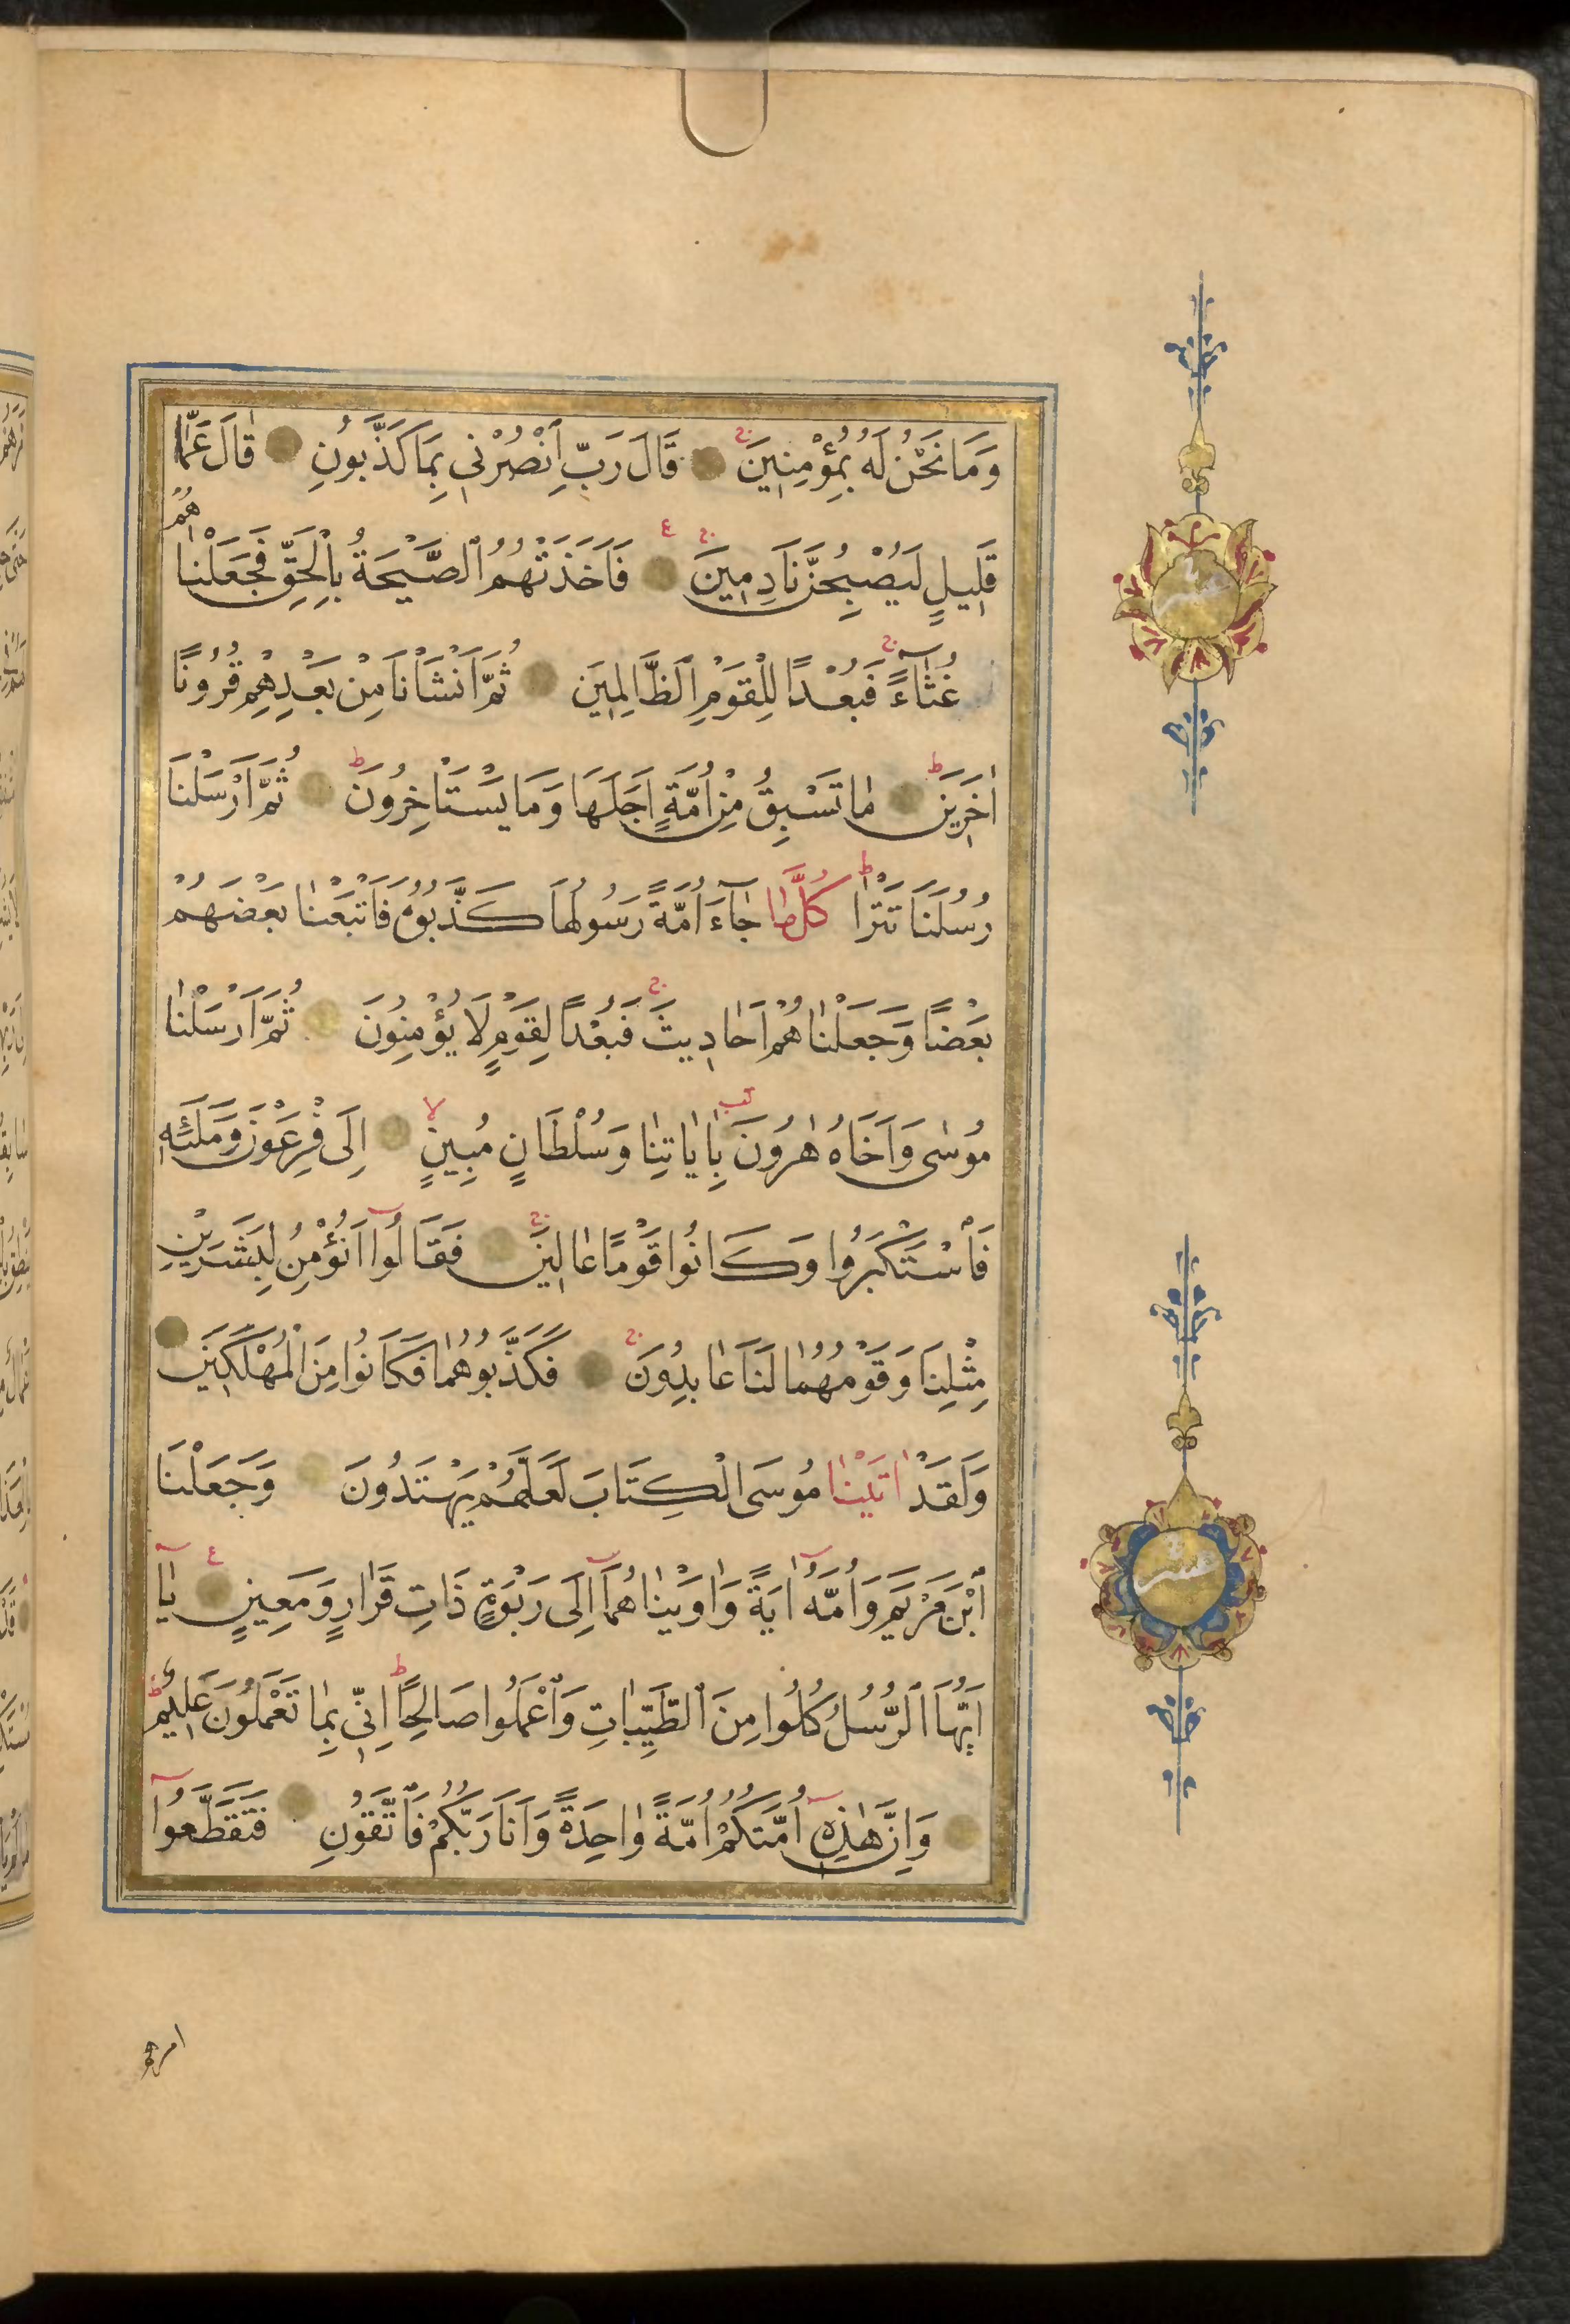 وَمَا نَحْنُ لَهُ بِمُؤْمِنِينَ ج قَالَ رَبِّ انْصُرْنِي بِمَا كَذَّبُونِ قَالَ عَمَّا
قَلِيلٍ لَيُصْبِحُنَّ نَادِمِينَ ج ع فَاَخَذَتْهُمُ ٱلصَّيْحَةُ بِالْحَقِّ فَجَعَلْنَاهُمْ
غُثَآءً ج فَبُعْدًا لِلْقَوْمِ ٱلظَّالِمِينَ ثُمَّ اَنْشَأْنَا مِنْ بَعْدِهِمْ قُرُونًا
اٰخَرِينَ ط مَا تَسْبِقُ مِنْ اُمَّةٍ اَجَلَهَا وَمَا يَسْتَاْخِرُونَ ط ثُمَّ اَرْسَلْنَا
رُسُلَنَا تَتْرَا ط كُلَّمَا جَآءَ اُمَّةً رَسُولُهَا كَذَّبُوهُ فَاَتْبَعْنَا بَعْضَهُمْ
بَعْضًا وَجَعَلْنَاهُمْ اَحَادِيثَ ج فَبُعْدًا لِقَوْمٍ لَا يُؤْمِنُونَ ثُمَّ اَرْسَلْنَا
مُوسٰى وَاَخَاهُ هٰرُونَ بِاٰيَاتِنَا وَسُلْطَانٍ مُبِينٍ لا اِلَى فِرْعَوْنَ وَمَلَئِهِ
فَاسْتَكْبَرُوا وَكَانُوا قَوْمًا عَالِينَ ج فَقَالُوا اَنُؤْمِنُ لِبَشَرَيْنِ
مِثْلِنَا وَقَوْمُهُمَا لَنَا عَابِدُونَ ج فَكَذَّبُوهُمَا فَكَانُوا مِنَ الْمُهْلَكِينَ
وَلَقَدْ اٰتَيْنَا مُوسَى الْكِتَابَ لَعَلَّهُمْ يَهْتَدُونَ وَجَعَلْنَا
ٱبْنَ مَرْيَمَ وَاُمَّهُ اٰيَةً وَاٰوَيْنَاهُمَآ اِلَى رَبْوَةٍ ذَاتِ قَرَارٍ وَمَعِينٍ ع يَآ
اَيُّهَا ٱلرُّسُلُ كُلُوا مِنَ ٱلطَّيِّبَاتِ وَٱعْمَلُوا صَالِحًا ط اِنِّي بِمَا تَعْمَلُونَ عَلِيمٌ ط
وَاِنَّ هٰذِهِ اُمَّتُكُمْ اُمَّةً وَاحِدَةً وَاَنَا رَبُّكُمْ فَاتَّقُونِ فَتَقَطَّعُوا
امرهم
عشر